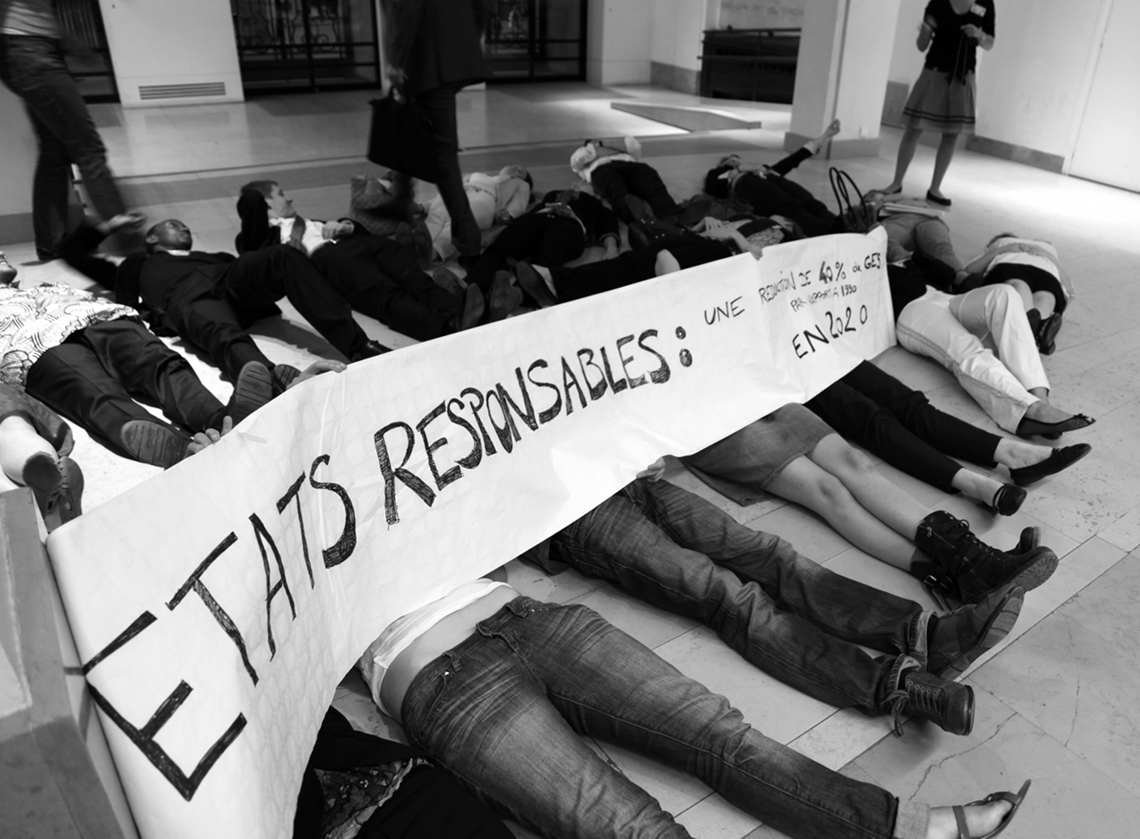 ETATS RESPONSABLES : UNE
REDUCTION DE 40% de GES
PAR RAPPORT À 1990
EN 2020